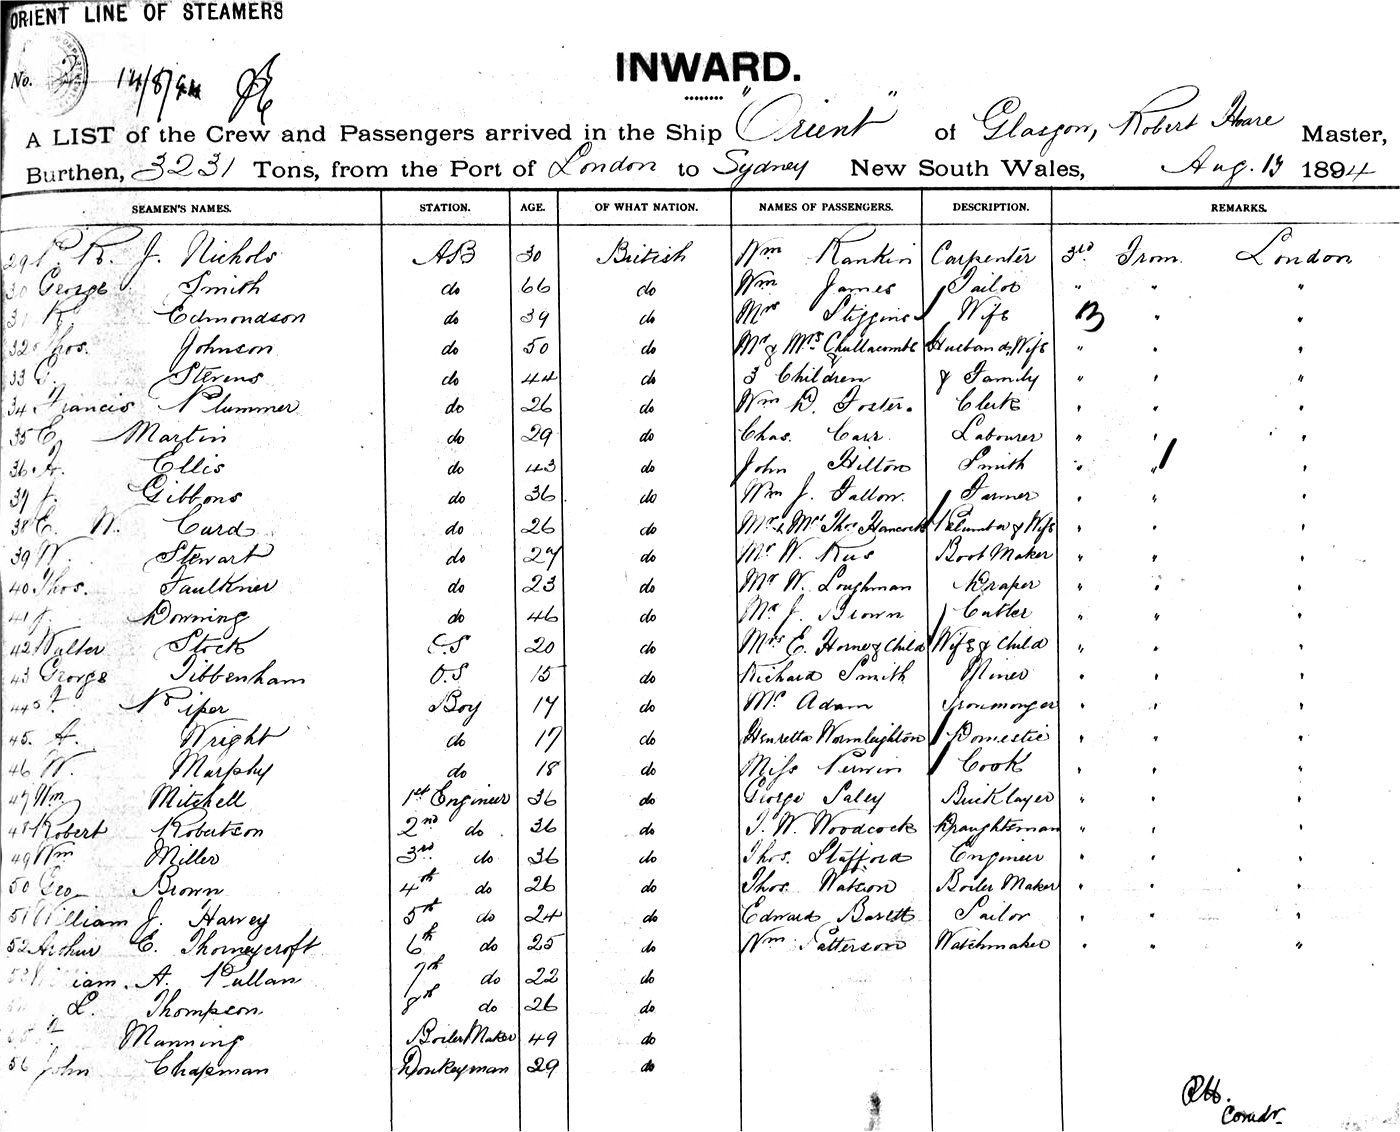 ORIENT LINE OF STEAMERS
INWARD.
No. 14/8/94
A LIST of the Crew and Passengers arrived in the Ship "Orient" of Glasgow, Robert Hoare Master,
Burthen, 3231 Tons, from the Port of London to Sydney New South Wales, Aug. 13 1894
SEAMEN'S NAMES. STATION. AGE. OF WHAT NATION. NAMES OF PASSENGERS. DESCRIPTION. REMARKS.
29 P. R. J. Nichols AB 30 British Wm Rankin Carpenter 3rd From London
30 George Smith do 66 do Wm James Tailor " " "
31 R Edmondson do 39 do Mrs Stiggins Wife 13 " "
32 Thos. Johnson do 50 do Mr & Mrs Chullacombe Husband, Wife " " "
33 G. Stevens do 44 do 3 Children & Family " " "
34 Francis Plummer do 26 do Wm D. Foster. Clerk " " "
35 E. Martin do 29 do Chas. Carr Labourer " " "
36 A. Ellis do 43 do John Hilton Smith " " "
37 J. Gibbons do 36 do Wm J. Fallow. Farmer " " "
38 E. W. Card do 26 do Mr & Mrs Thos Hancock Plumber & Wife " " "
39 W. Stewart do 27 do Mr W. Boot Maker " " "
40 Thos. Faulkner do 23 do Mr W. Loughman Draper " " "
41 J. Downing do 46 do Mr J. Brown Cutler " " "
42 Walter Stock O.S 20 do Mrs E. Horne & Child Wife & Child " " "
43 George Tibbenham O.S 15 do Richard Smith Miner " " "
44 Piper Boy 17 do Mc Adam Ironmonger " " "
45. A. Wright do 17 do Henretta Wormleighton Domestic " " "
46 W. Marphy do 18 do Miss Perwin Cook " " "
47 Wm Mitchell 1st Engineer 36 do George Paley Bricklayer " " "
48 Robert Robertson 2nd do 36 do J. W. Woodcock Draughtsman " " "
49 Wm Miller 3rd do 36 do Thos. Stafford Engineer " " "
50 Geo Brown 4th do 26 do Thos Watson Boiler Maker " " "
51 William J. Harvey 5th do 24 do Edward Barett Sailor " " "
52 Arthur E. Thorneycroft 6th do 25 do Wm Patterson Watchmaker " " "
53 William. A. Pullan 7th do 22 do
L. Thompson 8th do 26 do
Manning Boiler Maker 49 do
56 John Chapman Donkeyman 29 do
RH.
Comdr